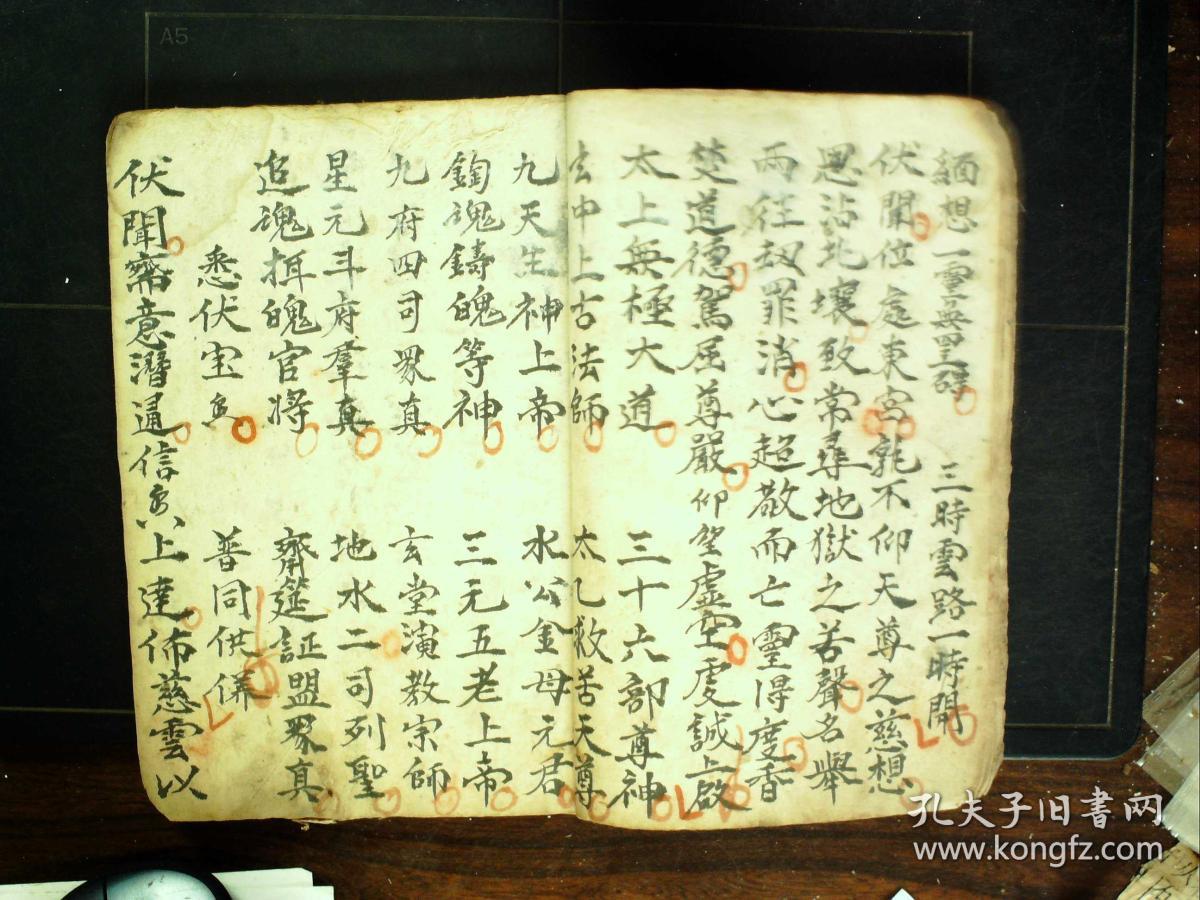 緬想一靈無罣碍 三時雲路一時開
伏聞位處東宮孰不仰天尊之慈想
恩沾北壤致常尋地獄之苦聲名舉
而往劫罪消心超敬而亡靈得度香
焚道德駕屈尊嚴仰望虛空虔誠上啟
太上無極大道 三十六部尊神
玄中上古法師 太乙救苦天尊
九天生神上帝 水公金母元君
鍧魂鑄魄等神 三元五老上帝
九府四司眾真 玄堂演教宗師
星元斗府羣真 地水二司列聖
追魂捉魄官将 齋筵証盟眾真
悉伏宝 普同供俻
伏聞齋意潛通信 上達佈慈雲以
A5
孔夫子旧书网
www.kongfz.com